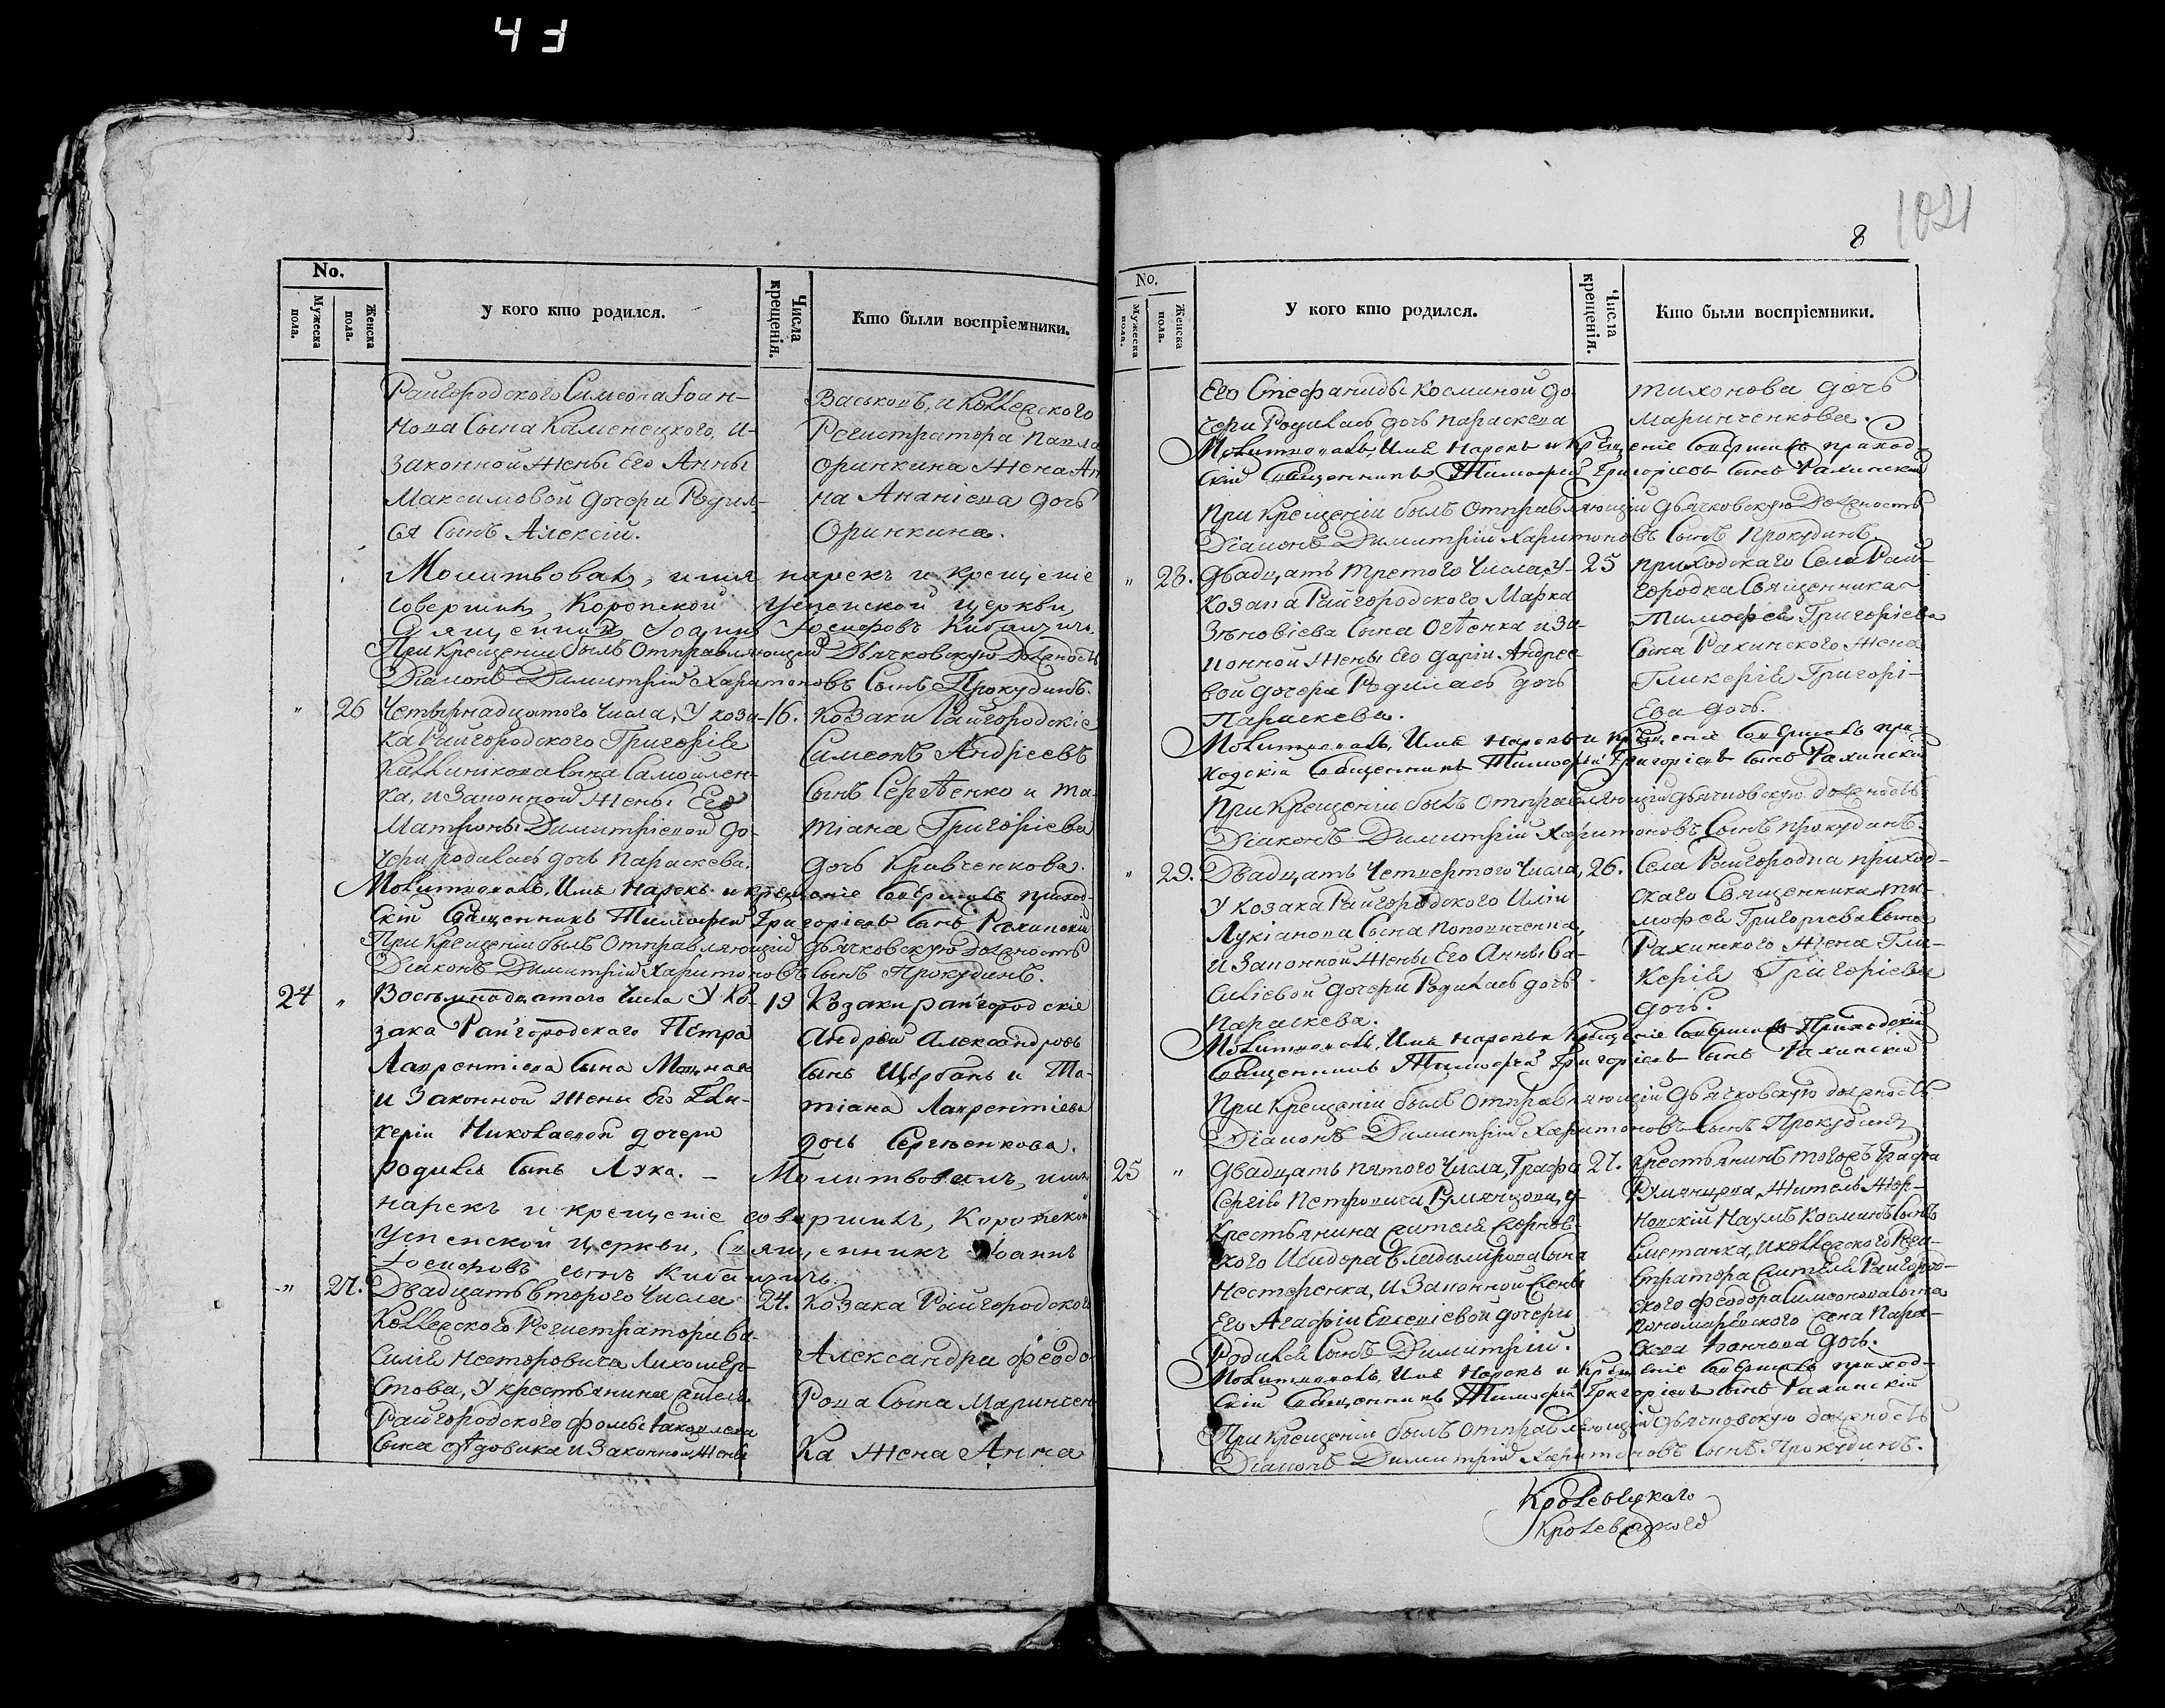 43
No.
Мужеска пола.
Женска пола.
У кого кто родился.
Числа крещенія.
Кто были воспріемники.
Райгородского Симеона Іоан-
нова Сына Каменецкого, и
законной жены Его Анны
Максимовой дочери Родил-
ся Сынъ Алексій.
Васьковъ, и Коллежского
Регистратора Павла
Оринкина жена Ан
на Ананіева дочь
Оринкина.
Молитвовалъ, имя нарекъ и крещеніе
совершилъ, Коропской Успенской церкви
Священникъ Іоаннъ Іосифовъ Кибальчичь.
При Крещеніи былъ Отправляющій Дьячковскую должность
Діаконъ Димитрій Харитоновъ Сынъ Прокудинъ.
" 26 Четырнадцатого Числа, У коза- 16.
ка Райгородского Григорія
Каллиникова Сына Самойлен-
ка, и Законной жены Его
Матроны Димитріевой до-
чери родилась дочь Параскева.
Козаки Райгородскіе
Симеонъ Андреевъ
Сынъ Сергѣенко и Та-
тіана Григоріева
дочь Кравченкова.
Молитвовалъ, Имя Нарекъ и крещеніе совершилъ приход-
скій Священникъ Тимофей Григоріевъ сынъ Рахинскій
При Крещеніи былъ Отправляющій дьячковскую должность
Діаконъ Димитрій Харитоновъ Сынъ Прокудинъ.
24 " Восемнадцатого Числа У Ко- 19
зака Райгородскаго Петра
Лаврентіева Сына
и Законной жены Его Гли-
керіи Николаевой дочери
родился Сынъ Лука. –
Козаки райгородскіе
Андрей Александровъ
сынъ Щербань и Та-
тіана Лаврентіева
дочь Сергѣенкова.
Молитвовалъ, имя
нарекъ и крещеніе совершилъ, Коропской
Успенской церкви, Священникъ Іоаннъ
Іосифовъ сынъ Кибальчичь.
" 27. Двадцать второго Числа 24.
Коллежского Регистратора Ва-
силія Несторовича Ликошер-
стова, У крестьянина жителя
Райгородского Фомы Іаковлева
Сына Дѣдовика и Законной жены
Козака Райгородского
Александра Феодо-
рова Сына Маринчен
ка жена Анна
1021
8
No.
Мужеска пола.
Женска пола.
У кого кто родился.
Числа крещенія.
Кто были воспріемники.
Его Стефаниды Косминой до
чери Родилась дочь Параскева
Тихонова дочь
Маринченкова.
Молитвовалъ, Имя Нарекъ и Крещеніе совершилъ приход-
скій Священникъ Тимофей Григоріевъ сынъ Рахинскій
При Крещеніи былъ Отправляющій дьячковскую должность
Діаконъ Димитрій Харитоновъ Сынъ Прокудинъ.
" 28. Двадцать третого Числа, У 25
Козака Райгородского Марка
Зѣновіева Сына и За-
конной жены Его Даріи Андрее-
вой дочери Родилась дочь
Параскева.
приходскаго Села Рай-
городка Священника
Тимофея Григоріева
Сына Рахинского жена
Гликерія Григорі-
ева дочь.
Молитвовалъ, Имя Нарекъ и крещеніе совершилъ при-
ходскій Священникъ Тимофей Григоріевъ сынъ Рахинскій
При Крещеніи былъ Отправляющій дьячковскую должность
Діаконъ Димитрій Харитоновъ Сынъ Прокудинъ.
" 29. Двадцать Четвертого Числа, 26.
У козака Райгородского Иліи
Лукіанова Сына Поповиченка,
и Законной жены Его Анны Ва-
силіевой дочери Родилась дочь
Параскева.
Села Райгородка приход-
скаго Священника Ти-
мофея Григоріева Сына
Рахинского жена Гли-
керія Григоріева
дочь.
Молитвовалъ, Имя Нарекъ и Крещеніе совершилъ Приходскій
Священникъ Тимофей Григоріевъ сынъ Рахинскій
При Крещеніи былъ Отправляющій дьячковскую должность
Діаконъ Димитрій Харитоновъ Сынъ Прокудинъ
25 " Двадцать пятого Числа, Графа 27.
Сергія Петровича Румянцова, у
Крестьянина жителя
ского Исидора Владимірова Сына
Нестеренка, и Законной жены
Его Агафіи Евсевіевой дочери
Родился Сынъ Димитрій.
крестьянинъ тогожъ Графа
Румянцова, житель
Наумъ Косминъ Сынъ
Сметанка, и коллежского Реги-
стратора жителя Райгород-
ского Феодора Симеонова Сына
Пономаревского жена Пара-
скева Іоаннова дочь.
Молитвовалъ, Имя Нарекъ и Крещеніе совершилъ приход-
скій Священникъ Тимофей Григоріевъ сынъ Рахинскій
При Крещеніи былъ Отправляющій дьячковскую должность
Діаконъ Димитрій Харитоновъ Сынъ Прокудинъ.
Кролевецкаго
Кролевецкого